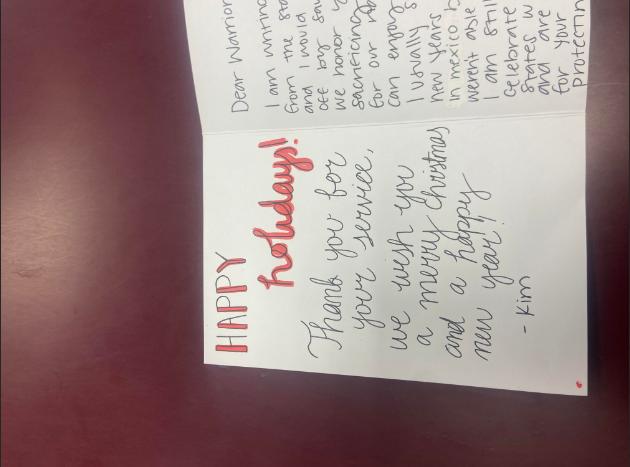 HAPPY
holidays!
Thank you for
your service,
we wish you
a merry Christmas
and a happy
new year!
- Kim
Dear Warrior
I am writing
from the
and I would
off by
we honor
sacrificing
for our
can enjoy
I usually
new years
in mexico
weren't able
I am still
celebrate
states
and are
for your